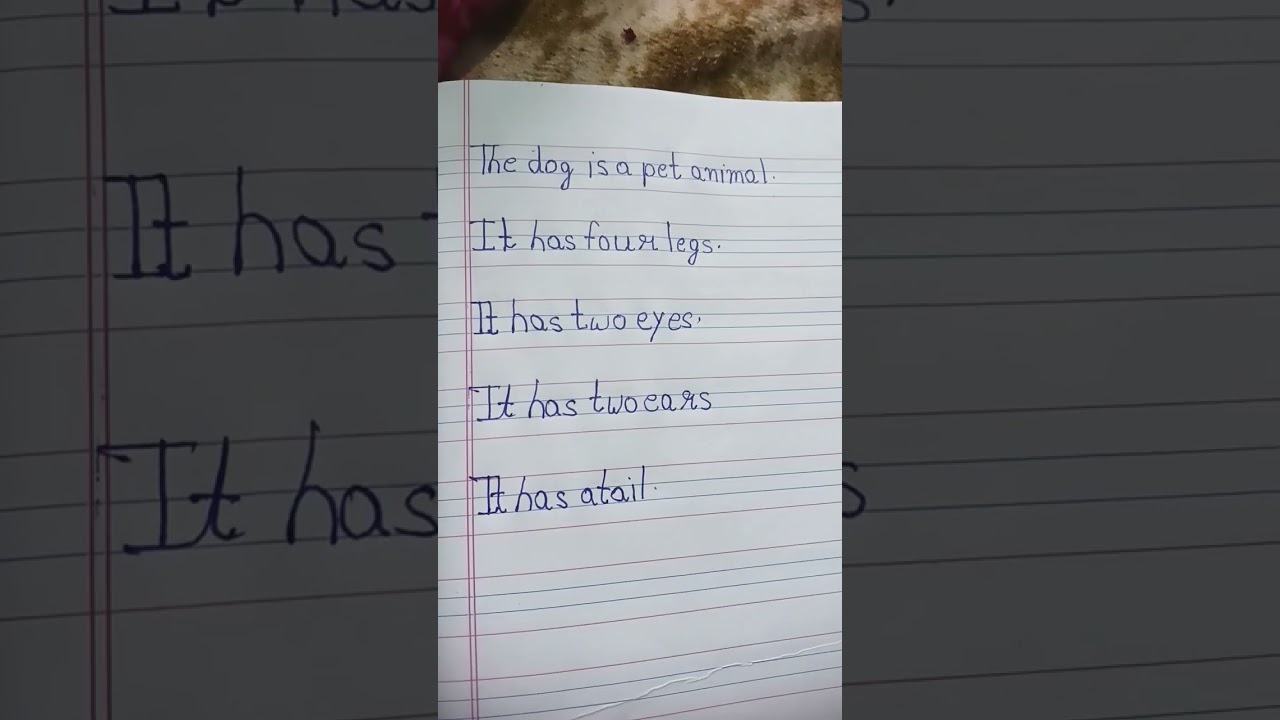 The dog is a pet animal.
It has four legs.
It has two eyes.
It has two ears
It has a tail.